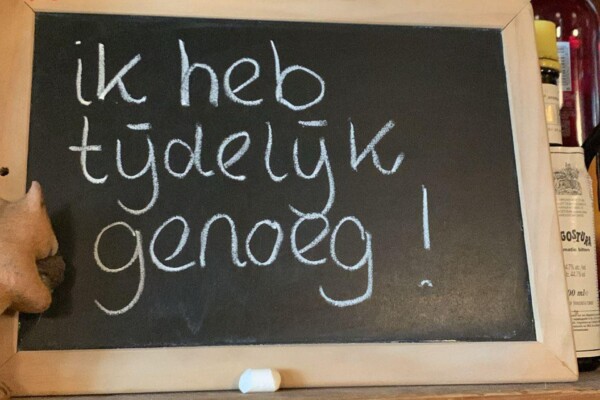 ik heb
tijdelijk
genoeg!
GOSTURA